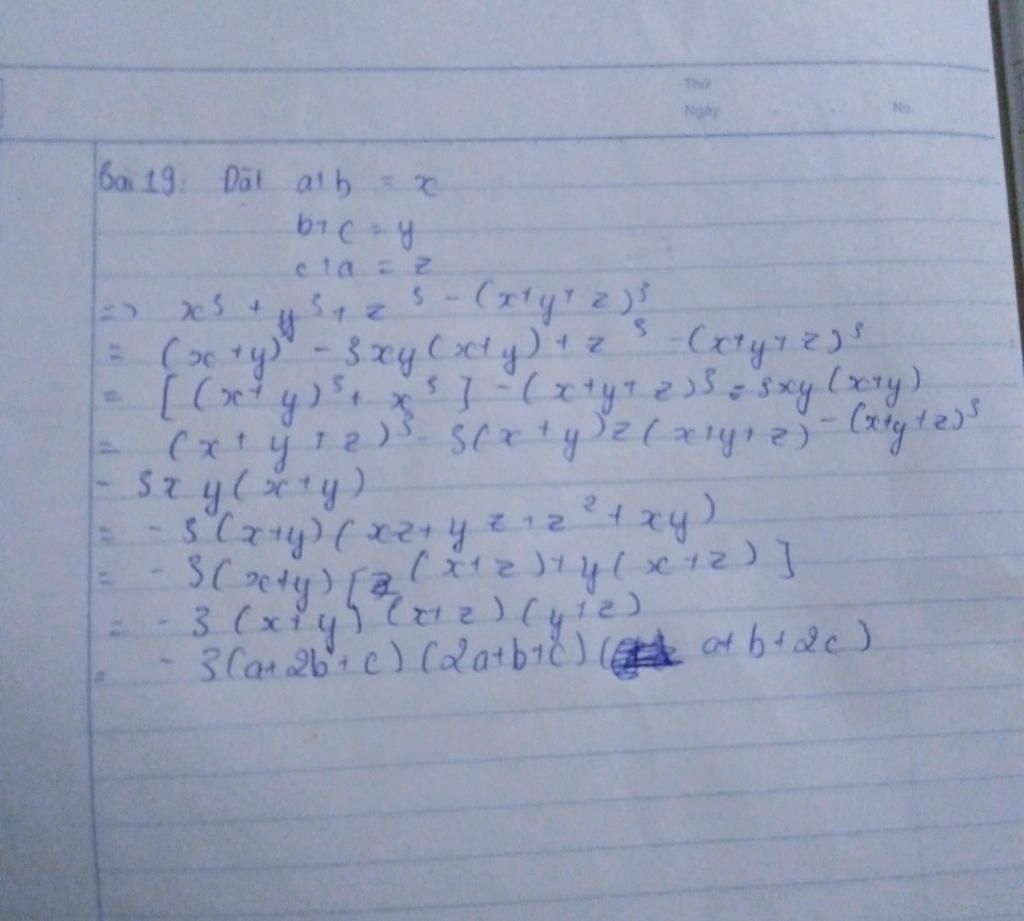 Thứ
Ngày No.
Bài 19: Đặt a+b = x
b+c = y
c+a = z
=> x³ + y³ + z³ - (x+y+z)³
= (x+y)³ - 3xy(x+y) + z³ - (x+y+z)³
= [(x+y)³ + x³] - (x+y+z)³ - 3xy(x+y)
= (x+y+z)³ - 3(x+y)z(x+y+z) - (x+y+z)³
- 3xy(x+y)
= -3(x+y)(xz+yz+z²+xy)
= -3(x+y)[z(x+z)+y(x+z)]
= -3(x+y)(x+z)(y+z)
= -3(a+2b+c)(2a+b+c)(a+b+2c)